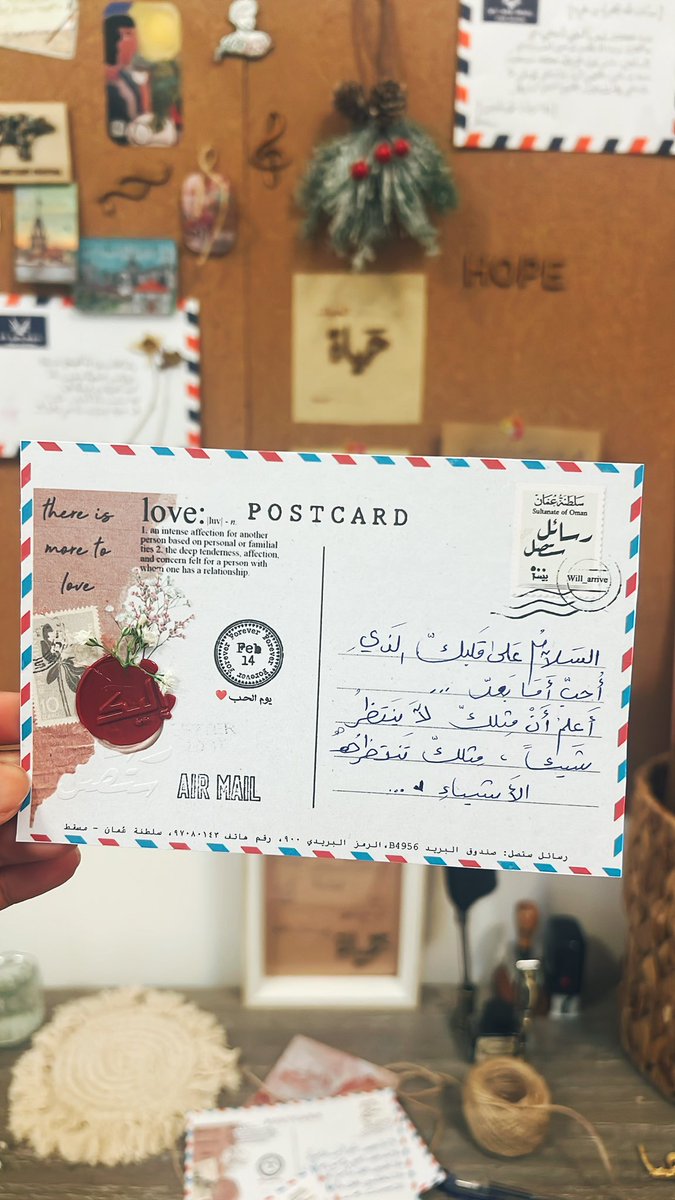 HOPE
حياة
there is
more to
love
love: |luv| - n.
1. an intense affection for another
person based on personal or familial
ties 2. the deep tenderness, affection,
and concern felt for a person with
whom one has a relationship.
POSTCARD
سلطنة عمان
Sultanate of Oman
رسائل
ستصل
Will_arrive
Forever Forever Forever Forever
Feb
14
يوم الحب
10
AIR MAIL
السلامُ على قلبكَ الذي
أُحبّ أما بعد ...
أعلم أنْ مثلكَ لا ينتظرُ
شيئاً ، مثلكَ تنتظرُهُ
الأشياءِ ...
رسائل ستصل: صندوق البريد B4956، الرمز البريدي ٩٠٠، رقم هاتف ٩٧٠٨٠١٤٣، سلطنة عُمان - مسقط